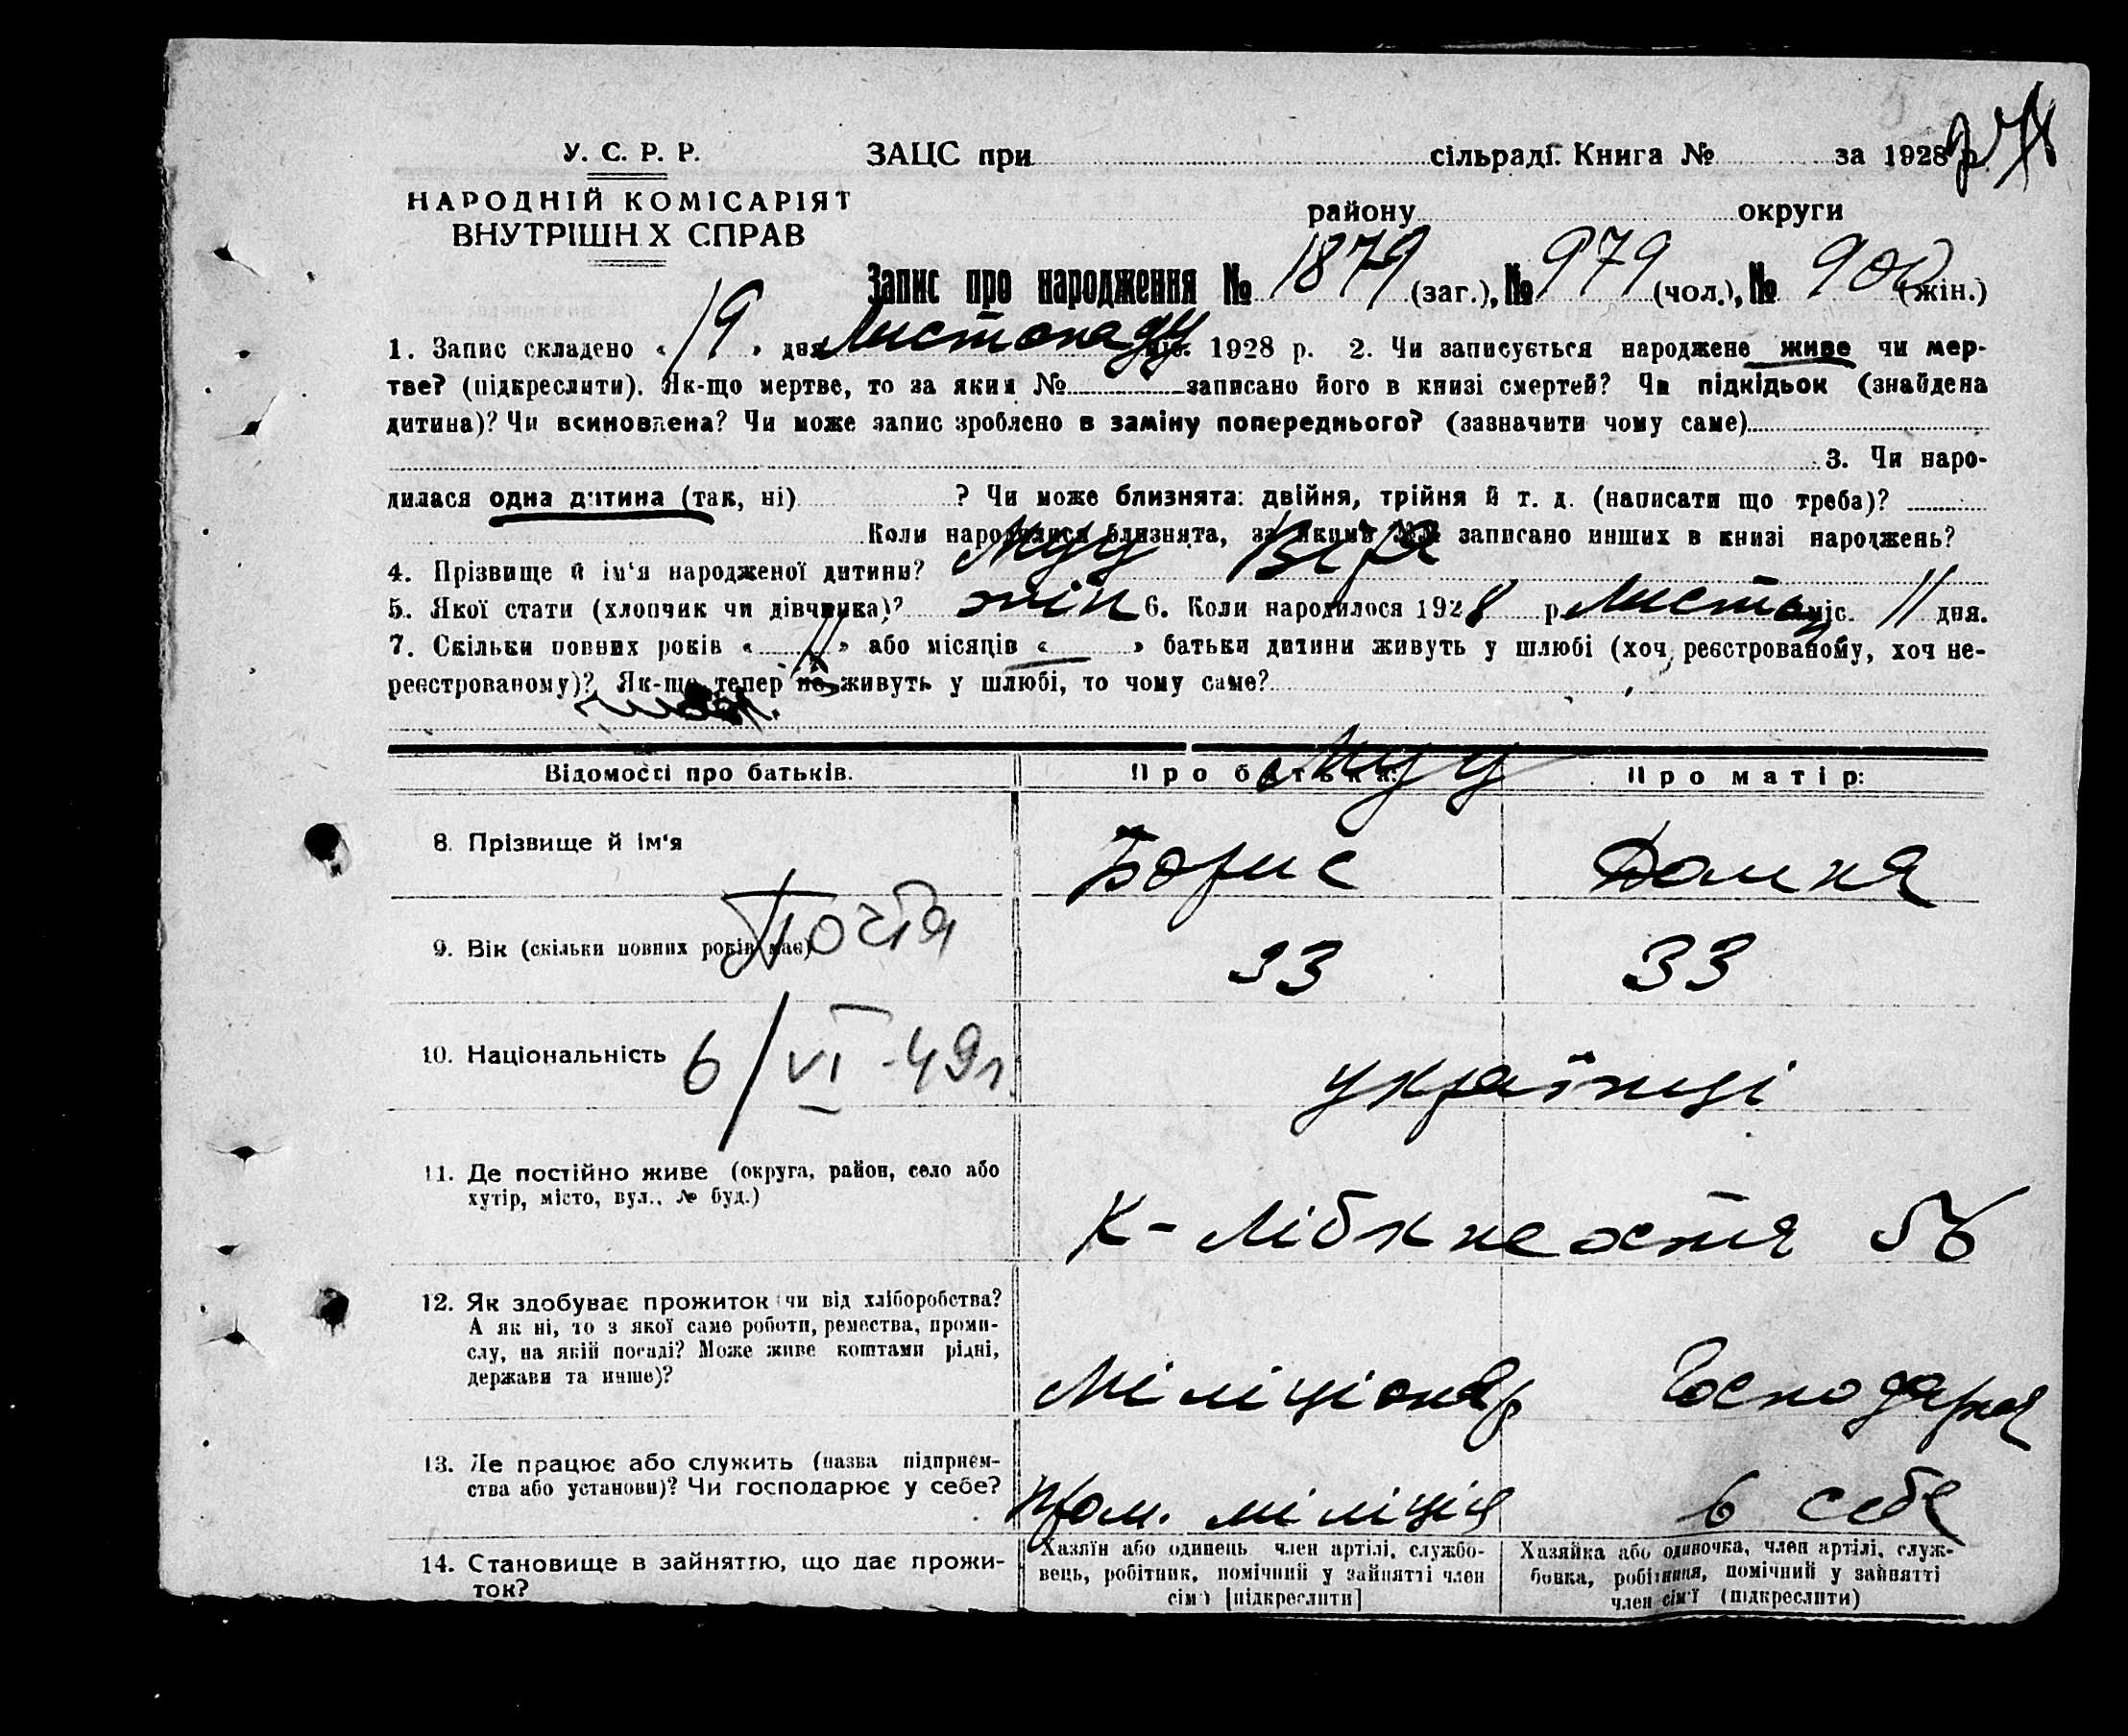 У. С. Р. Р. ЗАЦС при сільраді. Книга № за 1928 р.
НАРОДНІЙ КОМІСАРІЯТ
ВНУТРІШН Х СПРАВ
району округи
Запис про народження № 1879 (заг.), № 979 (чол.), № 900 (жін.)
1. Запис складено « 19 » дня Листопаду міс. 1928 р. 2. Чи записується народжене живе чи мер-
тве? (підкреслити). Як-що мертве, то за яким № записано його в книзі смертей? Чи підкідьок (знайдена
дитина)? Чи всиновлена? Чи може запис зроблено в заміну попереднього? (зазначити чому саме)
3. Чи наро-
дилася одна дитина (так, ні) ? Чи може близнята: двійня, трійня й т. д. (написати що треба)?
Коли народилися близнята, за якими №№ записано инших в книзі народжень?
4. Прізвище й ім'я народженої дитини? Муц Віра
5. Якої стати (хлопчик чи дівчинка)? жін 6. Коли народилося 1928 р. Листоп міс. 11 дня.
7. Скільки повних років « 11 » або місяців « — » батьки дитини живуть у шлюбі (хоч реєстрованому, хоч не-
реєстрованому)? Як-що тепер не живуть у шлюбі, то чому саме?
Відомості про батьків. Про батька: Про матір:
Муц
8. Прізвище й ім'я Борис Домня
9. Вік (скільки повних років має) 33 33
Почта
10. Національність українці
6/VI-49г.
11. Де постійно живе (округа, район, село або
хутір, місто, вул., № буд.)
К-Лібкнехтя 56
12. Як здобуває прожиток (чи від хліборобства?
А як ні, то з якої саме роботи, ремества, проми-
слу, на якій посаді? Може живе коштами рідні,
держави та инше)?
Міліціонер Господарня
13. Де працює або служить (назва підприєм-
ства або установи)? Чи господарює у себе?
Пром. міліція в себе
14. Становище в зайняттю, що дає прожи-
ток?
Хазяїн або одинець член артілі, службо-
вець, робітник, помічний у зайнятті член
сім'ї [підкреслити]
Хазяйка або одиночка, член артілі, служ-
бовка, робітниця, помічний у зайнятті
член сім'ї (підкреслити)